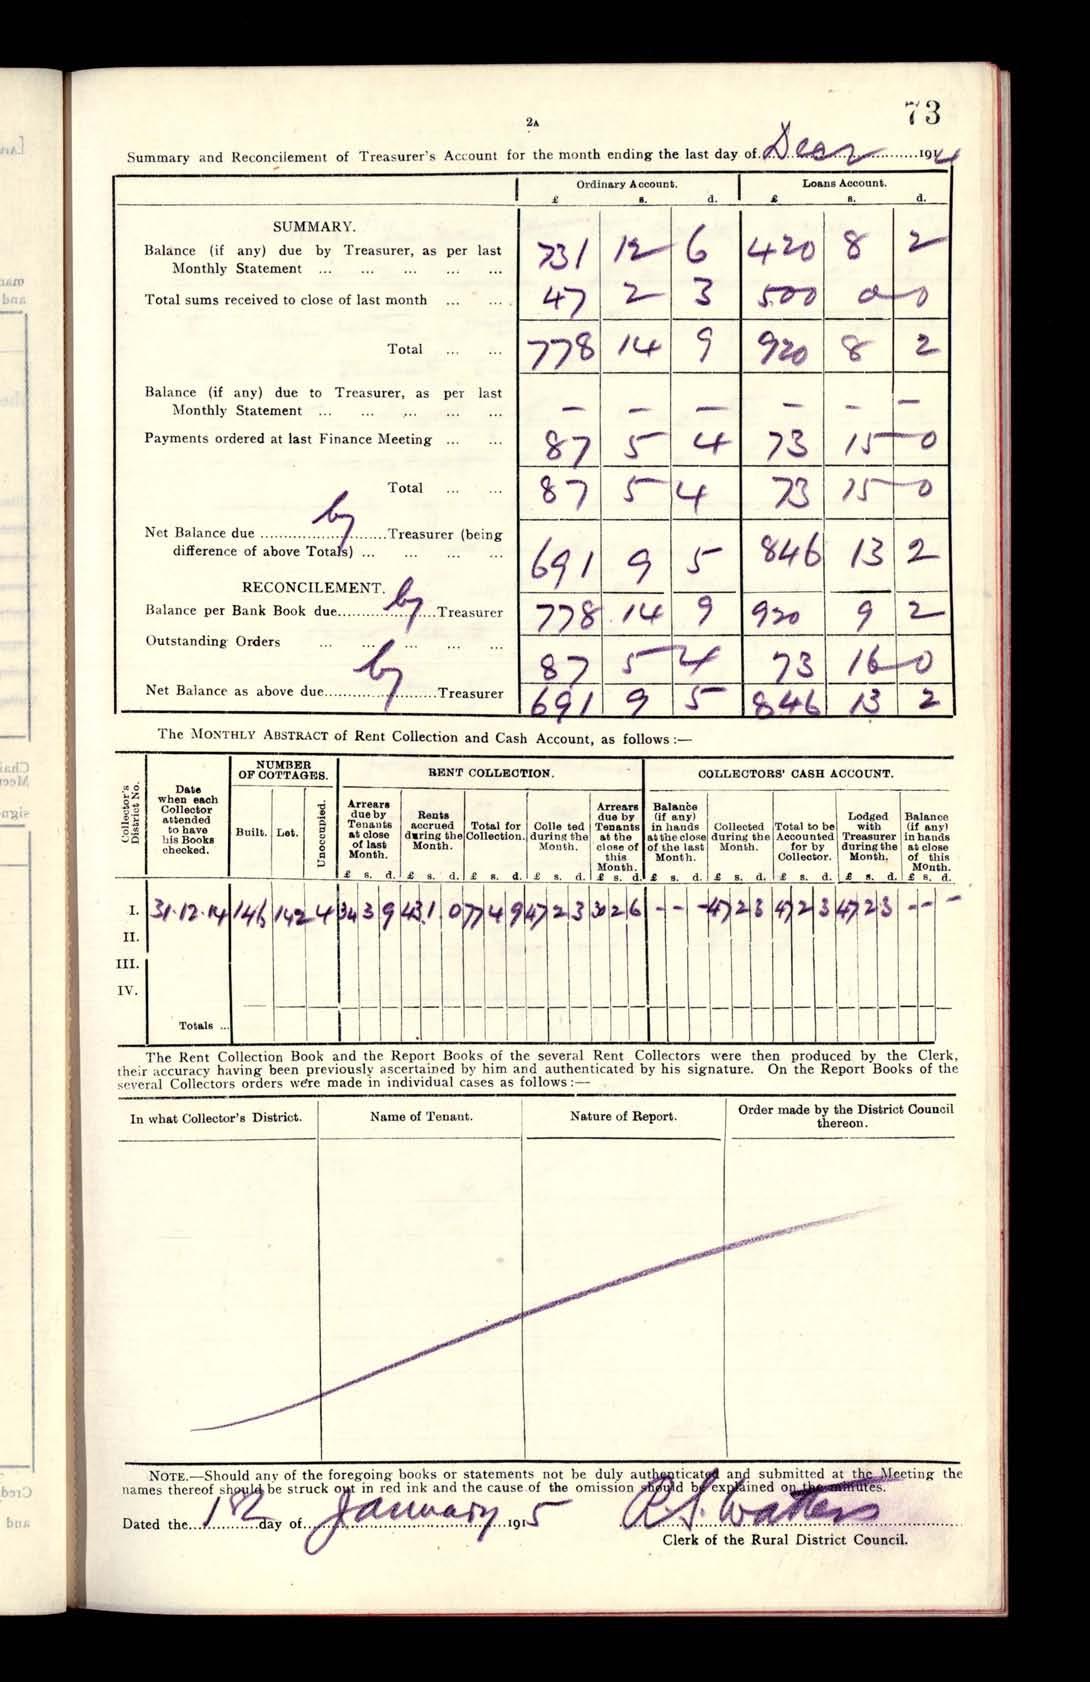 73
2A
Summary and Reconcilement of Treasurer's Account for the month ending the last day of Decr 1914
Ordinary Account. Loans Account.
£ s. d. £ s. d.
SUMMARY.
Balance (if any) due by Treasurer, as per last
Monthly Statement ... ... ... ... ... 731 12 6 420 8 2
Total sums received to close of last month ... ... 47 2 3 500 0 0
Total ... ... 778 14 9 920 8 2
Balance (if any) due to Treasurer, as per last
Monthly Statement ... ... ... ... ... – – – – – –
Payments ordered at last Finance Meeting ... ... 87 5 4 73 15 0
Total ... ... 87 5 4 73 15 0
Net Balance due by Treasurer (being
difference of above Totals) ... ... ... ... 691 9 5 846 13 2
RECONCILEMENT.
Balance per Bank Book due by Treasurer 778 14 9 920 9 2
Outstanding Orders ... ... ... ... ... 87 5 4 73 16 0
Net Balance as above due by Treasurer 691 9 5 846 13 2
The MONTHLY ABSTRACT of Rent Collection and Cash Account, as follows :—
Collector's District No.
Date when each Collector attended to have his Books checked.
NUMBER OF COTTAGES.
Built. Let. Unoccupied.
RENT COLLECTION.
Arrears due by Tenants at close of last Month.
Rents accrued during the Month.
Total for Collection.
Colle ted during the Month.
Arrears due by Tenants at the close of this Month.
COLLECTORS' CASH ACCOUNT.
Balance (if any) in hands at the close of the last Month.
Collected during the Month.
Total to be Accounted for by Collector.
Lodged with Treasurer during the Month.
Balance (if any) in hands at close of this Month.
£ s. d. £ s. d. £ s. d. £ s. d. £ s. d. £ s. d. £ s. d. £ s. d. £ s. d. £ s. d.
I. 31.12.14 146 142 4 34 3 9 43 1 0 77 4 9 47 2 3 30 2 6 - - - 47 2 3 47 2 3 47 2 3 - - -
II.
III.
IV.
Totals ...
The Rent Collection Book and the Report Books of the several Rent Collectors were then produced by the Clerk,
their accuracy having been previously ascertained by him and authenticated by his signature. On the Report Books of the
several Collectors orders were made in individual cases as follows :—
In what Collector's District. Name of Tenant. Nature of Report. Order made by the District Council thereon.
NOTE.—Should any of the foregoing books or statements not be duly authenticated and submitted at the Meeting the
names thereof should be struck out in red ink and the cause of the omission should be explained on the minutes.
Dated the day of January 1915 R. S. Watters
Clerk of the Rural District Council.